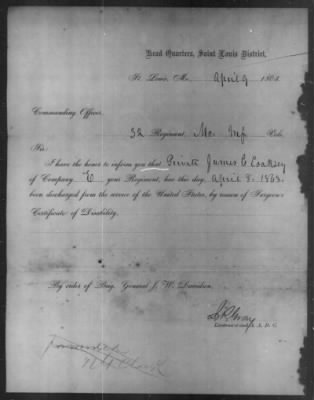 Head Quarters, Saint Louis District,
St. Louis, Mo. April 9 1863.
Commanding Officer,
32 Regiment, Mo. Inf Vols.
Sir:
I have the honor to inform you that Private James C
of Company E your Regiment, has this day, April 8. 1863.
been discharged from the service of the United States, by reason of Surgeon's
Certificate of Disability.
By order of Brig. General J. W. Davidson.
Gray
Lieutenant and A. D. C.